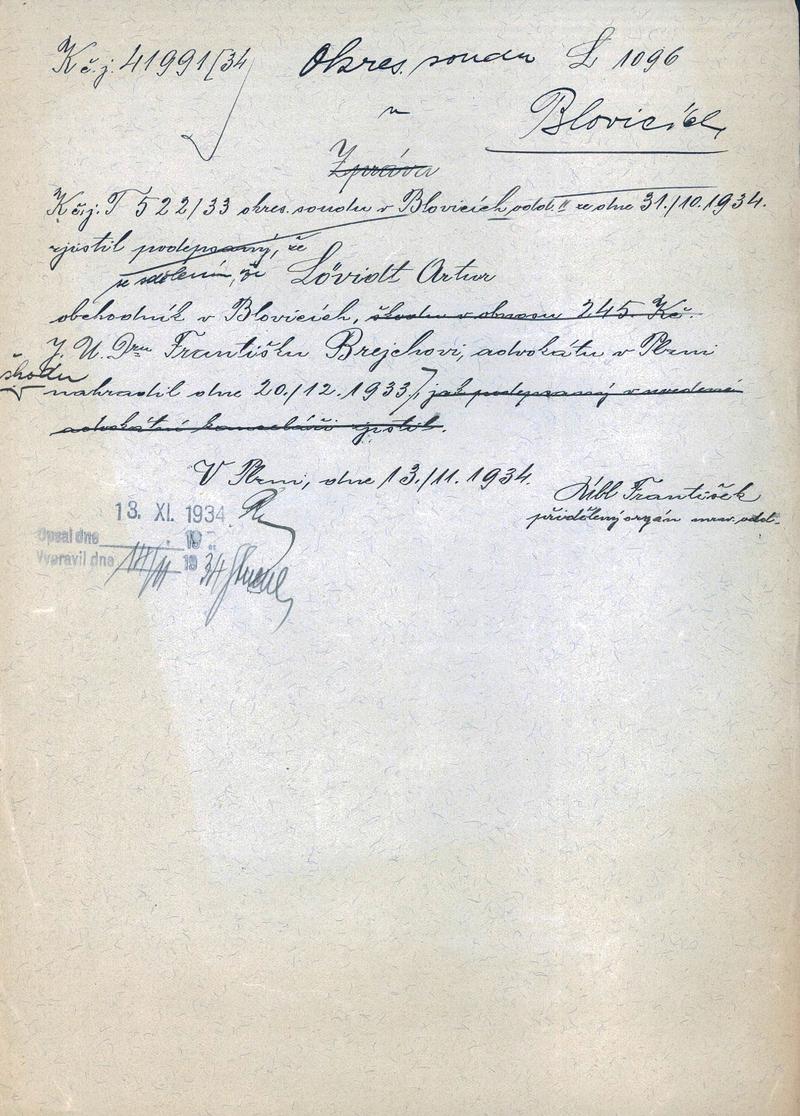 K č. j. 41991/34 Okres. soudu L 1096
v
Blovicích
Zpráva
K č. j. T 522/33 okres. soudu v Blovicích odd. II ze dne 31./10. 1934.
zjistil podepsaný, že
se sdělením, že Lövidt Artur
obchodník v Blovicích, škodu v obnosu 245 Kč.
J. U. Dru Františku Brejchovi, advokátu v Plzni
škodu
nahradil dne 20./12. 1933, jak podepsaný v uvedené
advokátní kanceláři zjistil.
V Plzni, dne 13./11. 1934.
František
přidělený orgán odd.
13. XI. 1934
Opsal dne 19
Vypravil dne 14/11 19 34